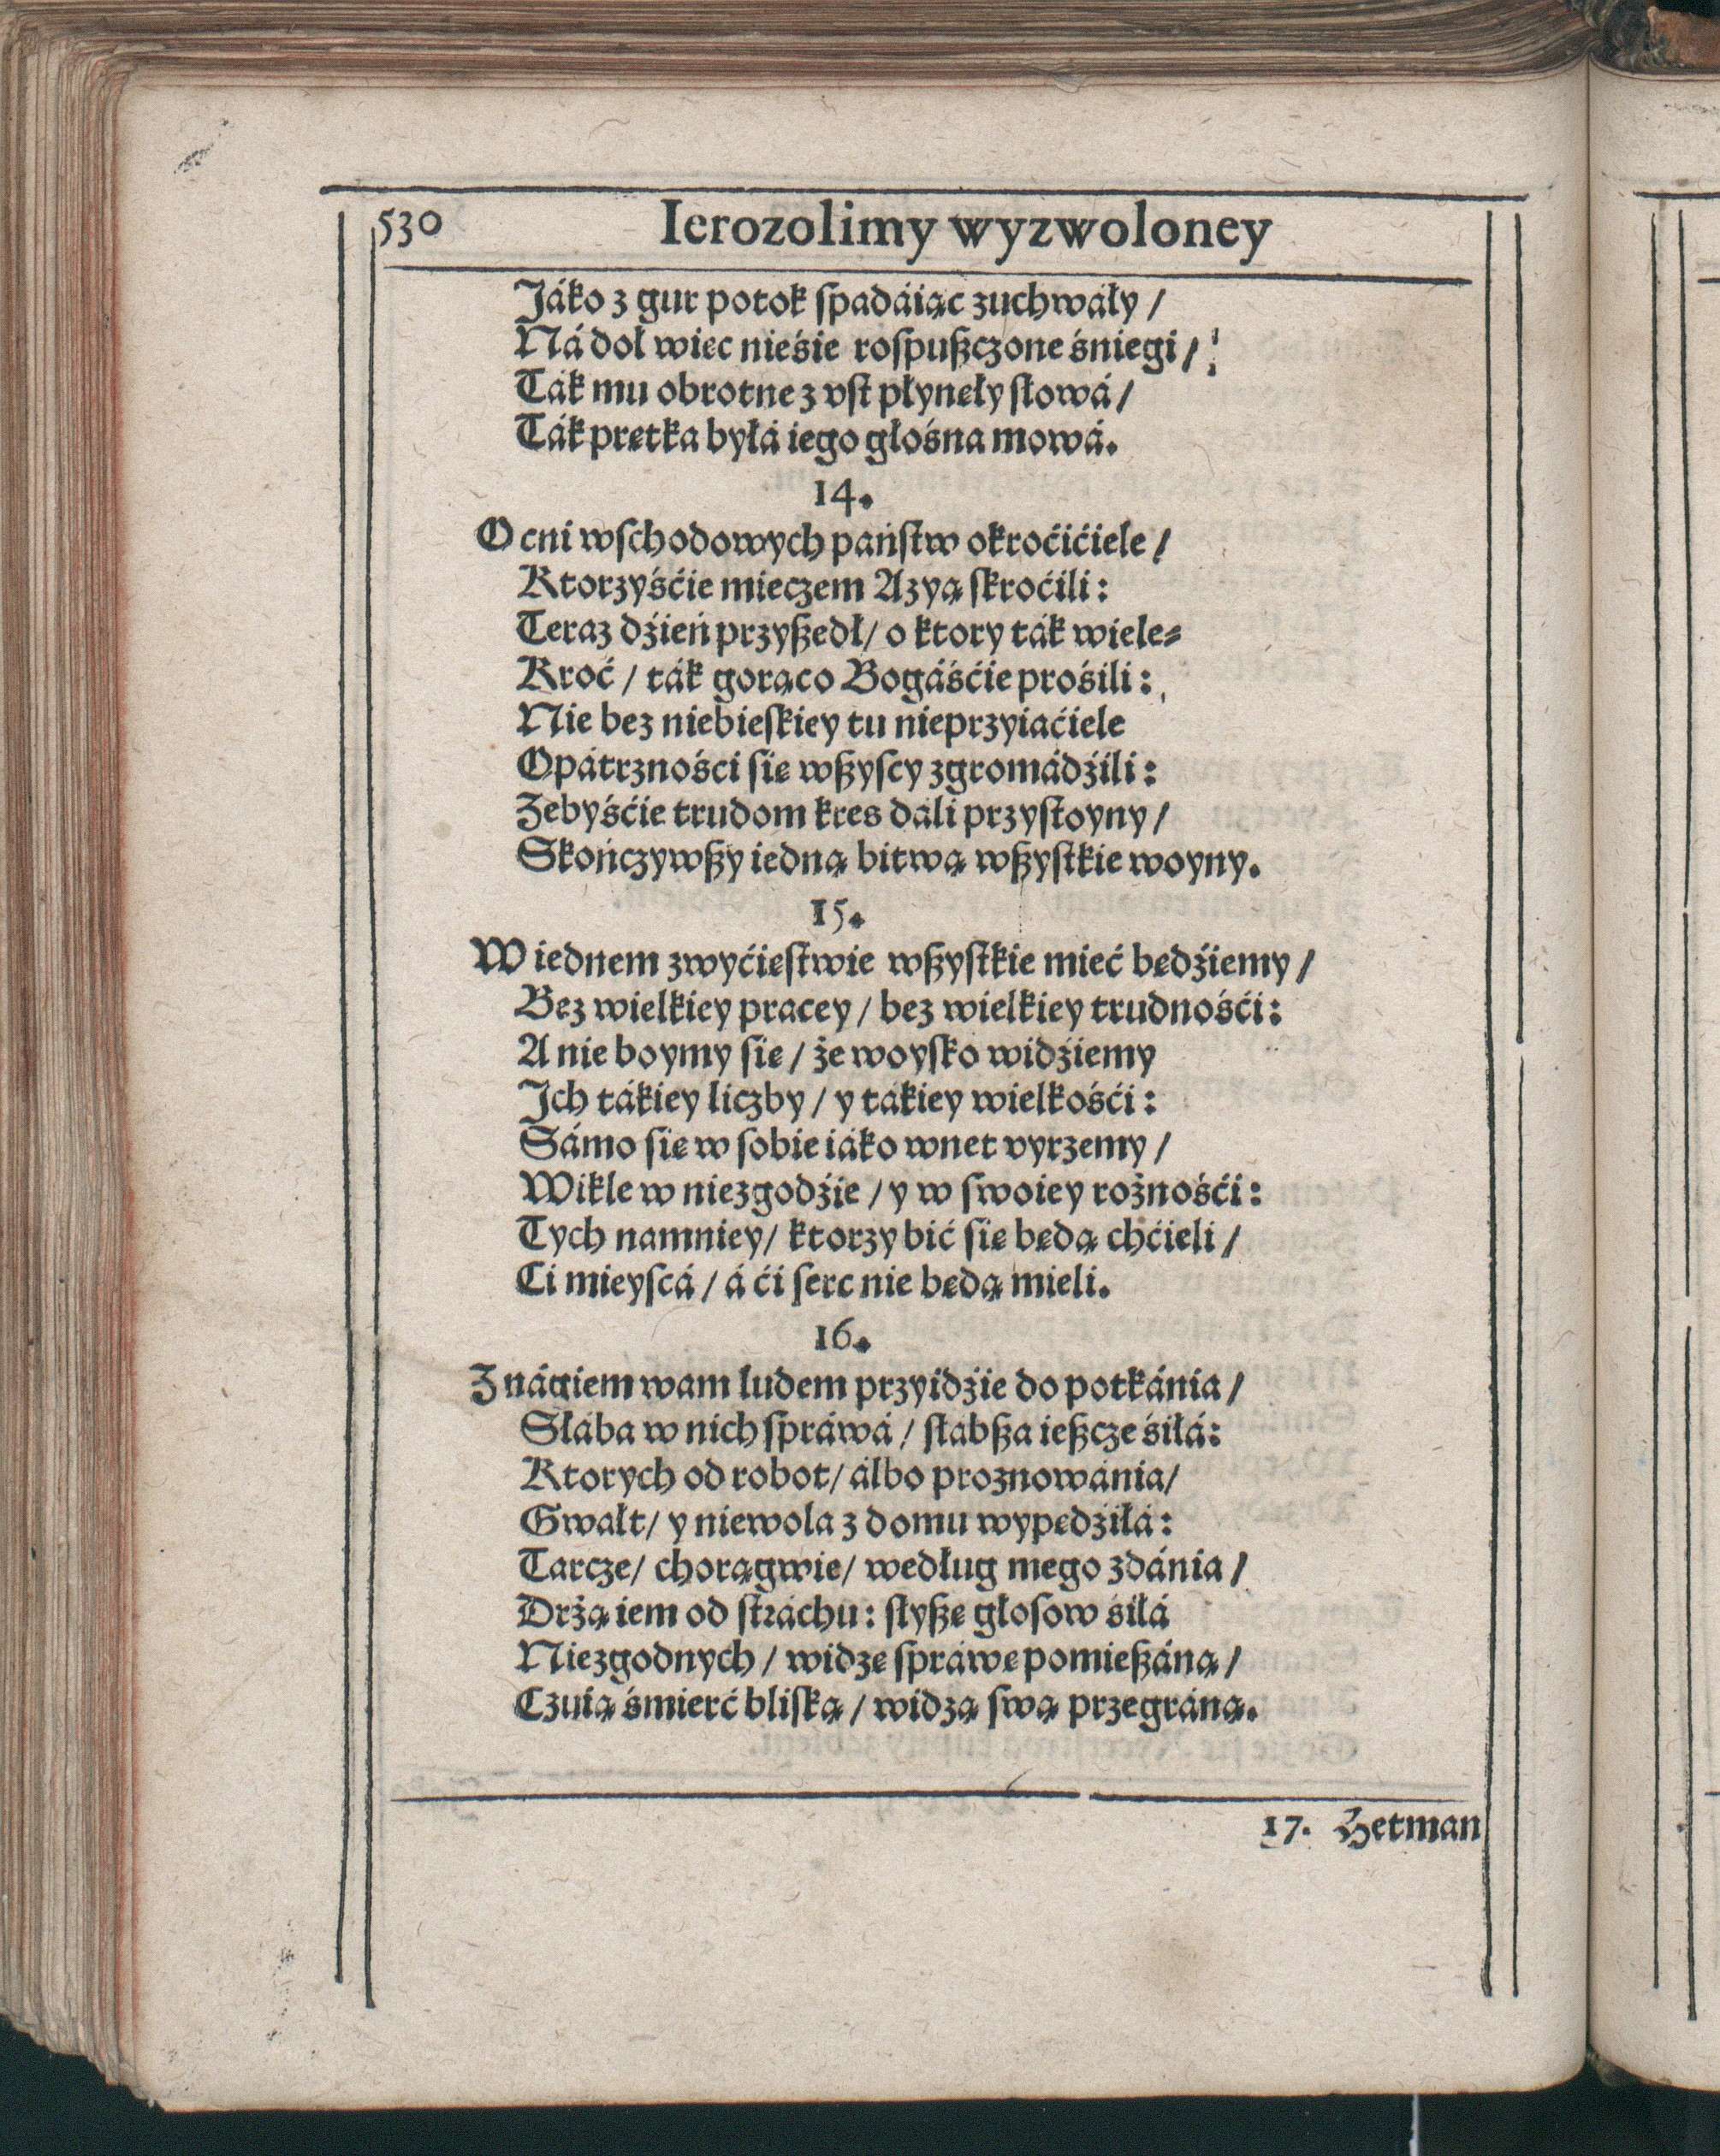 530 Ierozolimy wyzwoloney
Jáko z gur potok ſpadáiąc zuchwáły /
Ná doł więc nieśie roſpuſzczone śniegi /
Ták mu obrotne z vſt płynęły ſłowá /
Ták prętka byłá iego głośna mowá.
14.
O cni wſchodowych państw okroćićiele /
Ktorzyśćie mieczem Azyą ſkroćili:
Teraz dźień przyſzedł / o ktory ták wiele⸗
Kroć / ták gorąco Bogáśćie prośili:
Nie bez niebieſkiey tu nieprzyiaćiele
Opátrznośći ſię wſzyſcy zgromádźili:
Zebyśćie trudom kres dáli przyſtoyny /
Skończywſzy iedną bitwą wſzyſtkie woyny.
15.
W iednem zwyćięſtwie wſzyſtkie mieć będźiemy /
Bez wielkiey pracey / bez wielkiey trudnośći:
A nie boymy ſię / że woyſko widźiemy
Jch tákiey liczby / y tákiey wielkośći:
Sámo ſię w ſobie iáko wnet vyrzemy /
Wikle w niezgodźie / y w ſwoiey rożnośći:
Tych namniey / ktorzy bić ſię będą chćieli /
Ci mieyſcá / á ći ſerc nie będą mieli.
16.
Z nágiem wam ludem przyidźie do potkánia /
Słába w nich ſpráwá / ſłabſza ieſzcze śiłá:
Ktorych od robot / álbo proznowánia /
Gwałt / y niewola z domu wypędźiłá:
Tarcze / chorągwie / według mego zdánia /
Drżą iem od ſtráchu: ſłyſzę głoſow śiłá
Niezgodnych / widzę ſpráwę pomieſzáną /
Czuią śmierć bliſką / widzą ſwą przegráną.
17. Hetman